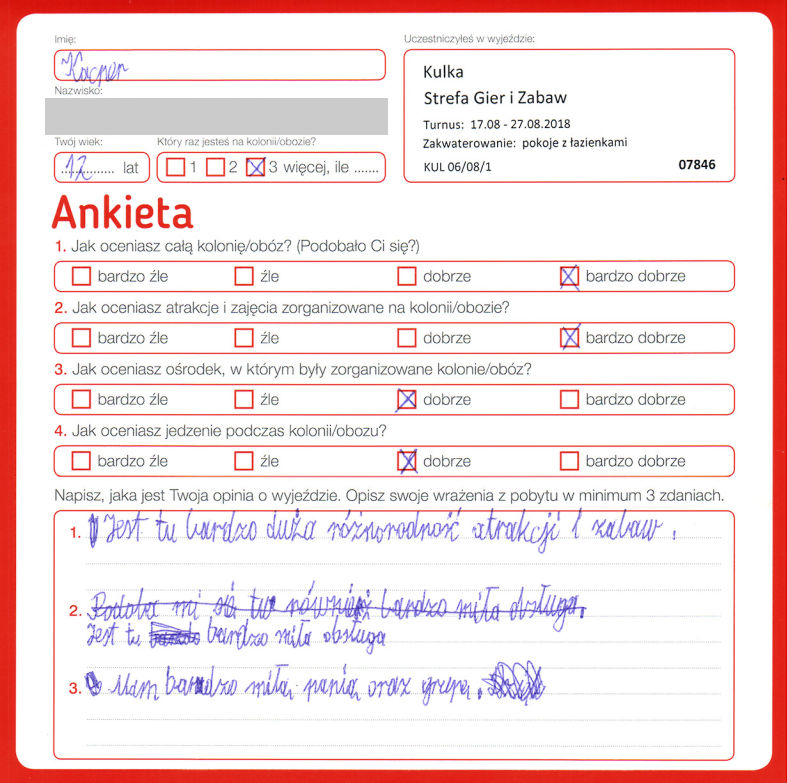 Imię:
Kacper
Nazwisko:
Twój wiek:
12 lat
Który raz jesteś na kolonii/obozie?
1 2 3 więcej, ile .......
Uczestniczyłeś w wyjeździe:
Kulka
Strefa Gier i Zabaw
Turnus: 17.08 - 27.08.2018
Zakwaterowanie: pokoje z łazienkami
KUL 06/08/1 07846
Ankieta
1. Jak oceniasz całą kolonię/obóz? (Podobało Ci się?)
bardzo źle źle dobrze bardzo dobrze
2. Jak oceniasz atrakcje i zajęcia zorganizowane na kolonii/obozie?
bardzo źle źle dobrze bardzo dobrze
3. Jak oceniasz ośrodek, w którym były zorganizowane kolonie/obóz?
bardzo źle źle dobrze bardzo dobrze
4. Jak oceniasz jedzenie podczas kolonii/obozu?
bardzo źle źle dobrze bardzo dobrze
Napisz, jaka jest Twoja opinia o wyjeździe. Opisz swoje wrażenia z pobytu w minimum 3 zdaniach.
1. Jest tu bardzo duża różnorodność atrakcji i zabaw.
2. Podoba mi się tu również bardzo miła obsługa.
Jest tu bardzo miła obsługa
3. Mam bardzo miłą panią oraz grupą.